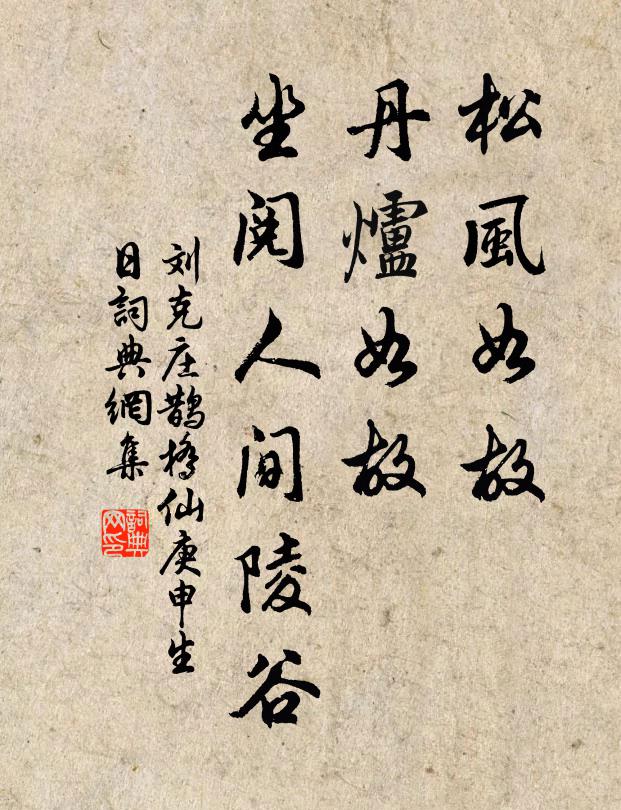 松風如故
丹爐如故
坐閱人間陵谷
刘克庄鵲橋仙庚申生
日詞典網集
詞典
网印